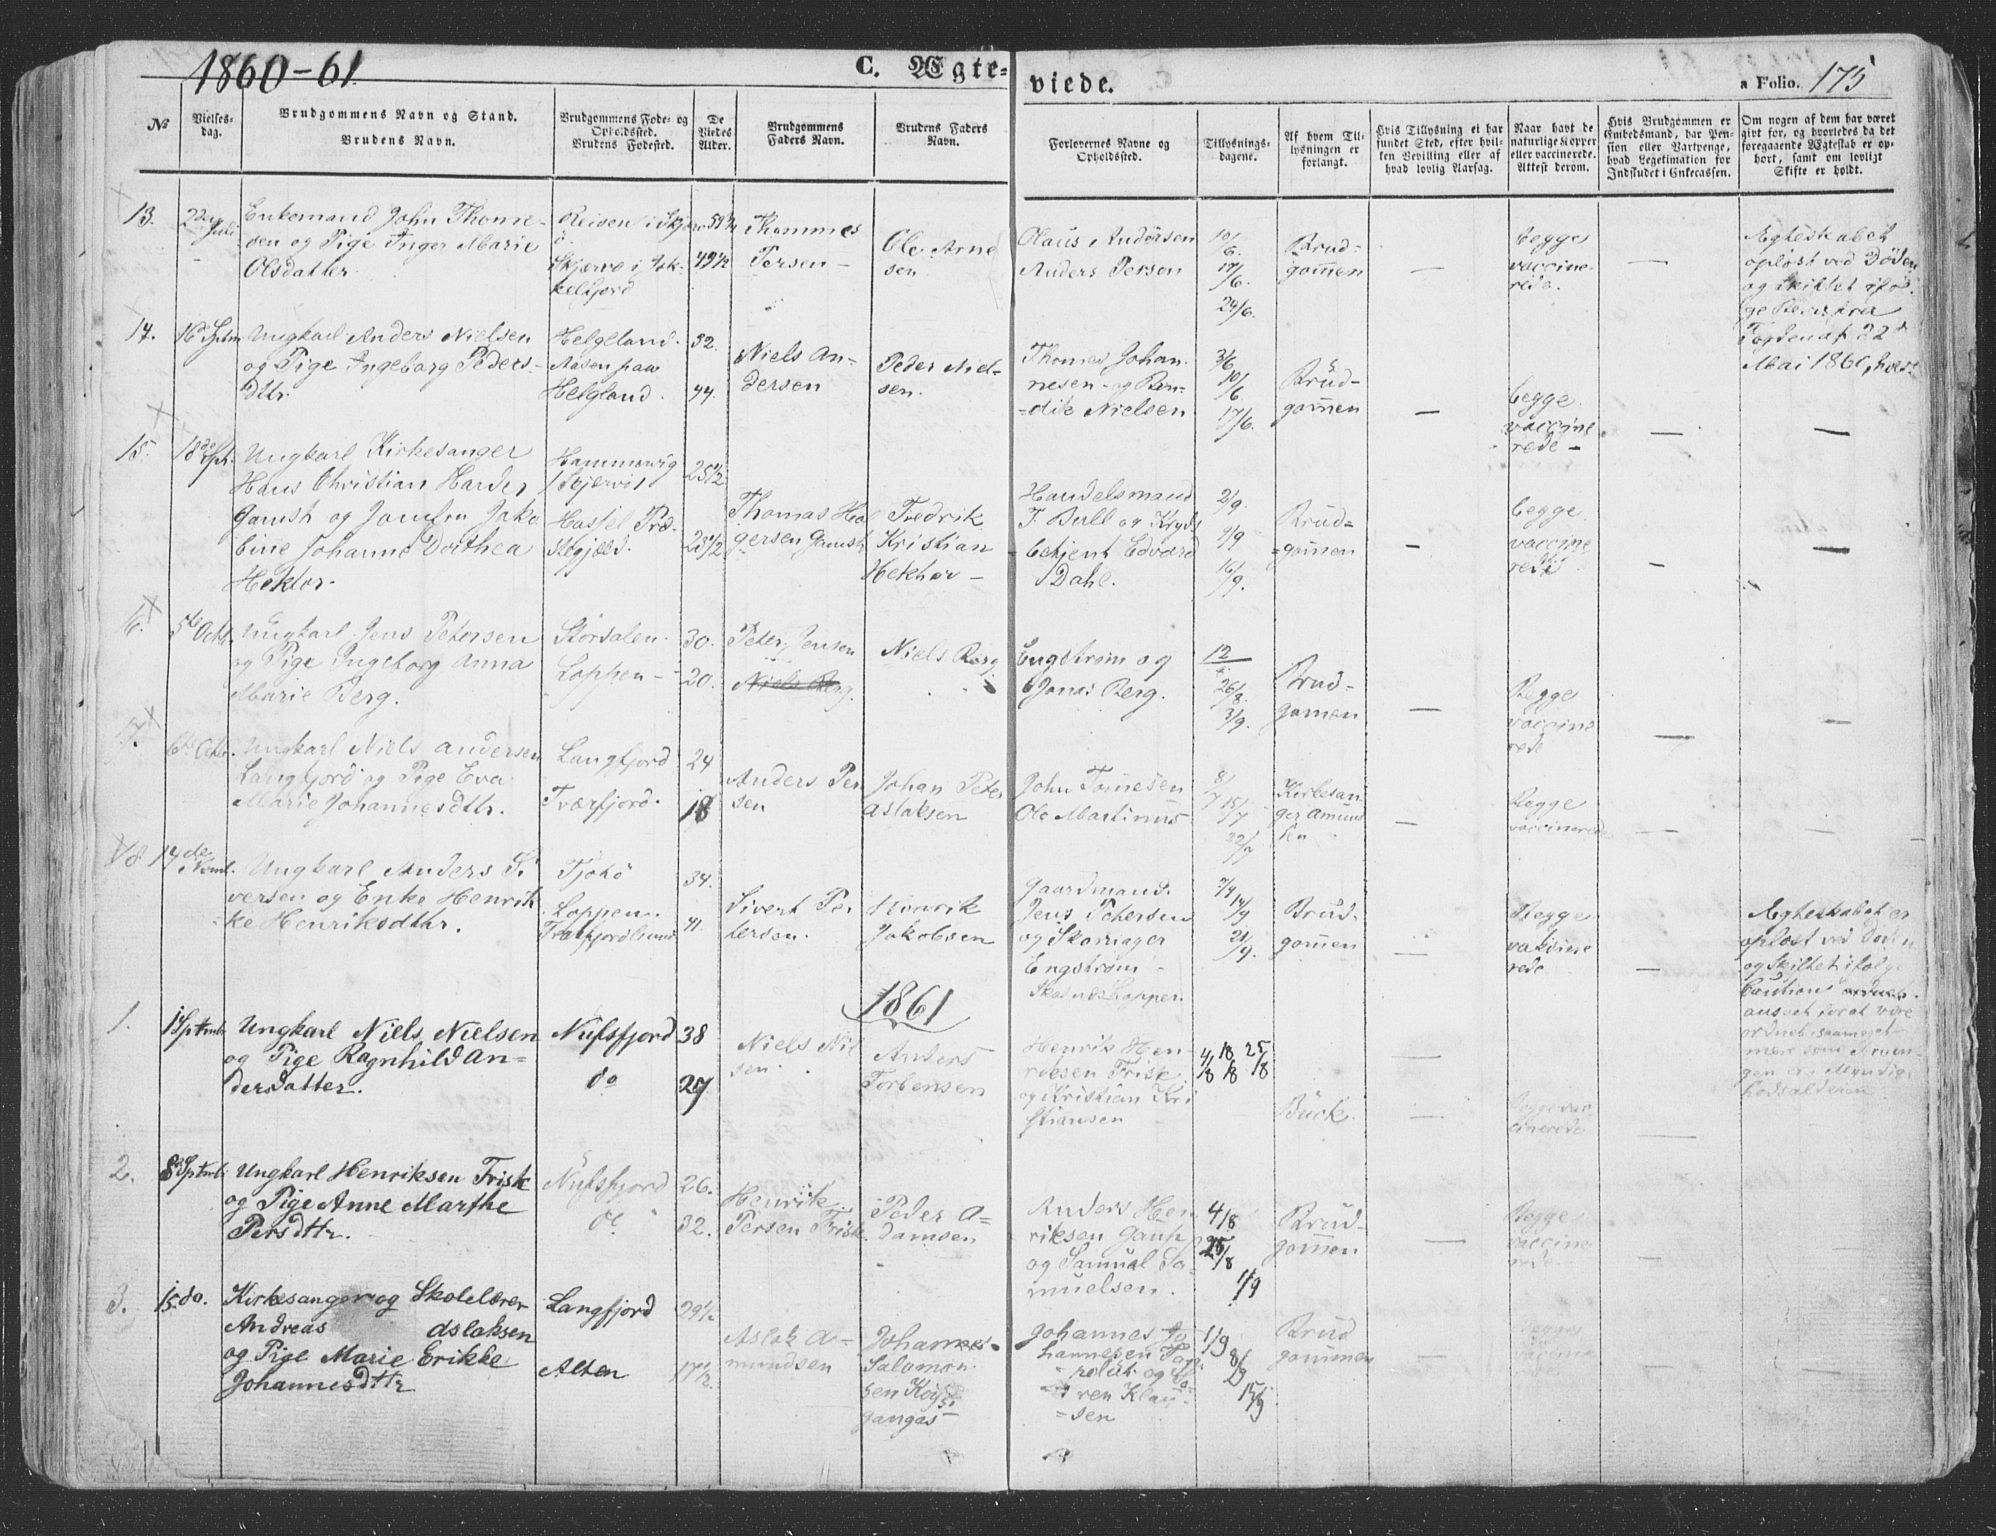 1860-61
C. Ægte-
viede.
a Folio. 175
No
Vielses-
dag.
Brudgommens Navn og Stand.
Brudens Navn.
Brudgommens Føde- og
Opholdssted.
Brudens Fødested.
De
Viedes
Alder.
Brudgommens
Faders Navn.
Brudens Faders
Navn.
Forlovernes Navne og
Opholdssted.
Tillysnings-
dagene.
Af hvem Til-
lysningen er
forlangt.
Hvis Tillysning ei har
fundet Sted, efter hvil-
ken Bevilling eller af
hvad lovlig Aarsag.
Naar havt de
naturlige Kopper
eller vaccinerede.
Attest derom.
Hvis Brudgommen er
Embedsmand, har Pen-
sion eller Vartpenge,
hvad Legitimation for
Indskudet i Enkecassen.
Om nogen af dem har været
givt før, og hvorledes da det
foregaaende Ægteskab er op-
hørt, samt om lovligt
Skifte er holdt.
13.
Juli
Enkemand John Thome-
sen og Pige Inger Marie
Olsdatter
Reisen i Skjerv
ø
Skjervø i Jøk-
kelfjord
49½
Thommes
Persen
Ole Arne
sen.
Olaus Andersen
Anders Person
10/6.
17/6.
24/6.
Brud-
gommen
begge
vaccine-
rede.
Ægteskabet
opløst ved Døden
og skiftet
14.
16de Sptm
Ungkarl Anders Nielsen
og Pige Ingeborg Peders-
dttr.
Helgeland.
Aasen paa
Helgland.
32.
44.
Niels An-
dersen
Peder Niel-
sen.
Thomes Johan-
nesen og Ben-
dik Nielsen
3/6
10/6
17/6.
Brud-
gommen
begge
vaccine
rede
22de
Mai 1860,
15.
18de Spt.
Ungkarl Kirkesanger
Hans Christian Harder
Gamst og Jomfru Jako
bine Johanne Dorthea
Hektor.
Hammervig
/Skjervø/
Hasfel Præ-
stegjæld.
25½
23½
Thomas Hol
gersen Gamst
Fredrik
Kristian
Hekthor
Handelsmand
J. Bull og Kryds
betjent Edvard
Dahl.
2/9.
9/9
16/9.
Brud-
gommen
begge
vaccine
rede
16.
5te Octb.
Ungkarl Jens Petersen
og Pige Ingeborg Anna
Marie Berg.
Storsalen.
Loppen
30.
20.
Peter Jensen
Niels Berg.
Niels Berg
Engstrøm og
Jonas Berg.
12
26/8
3/9.
Brud-
gomen
Begge
vaccine
rede
17.
6te Octb.
Ungkarl Niels Andersen
Langfjord og Pige Eva
Marie Johannesdttr.
Langfjord
Tværfjord.
24
18
Anders Per
sen
Johan Peter
Aslaksen
John Tomesen
Ole Martinus
8/7
15/7
22/7
Kirkesan
ger Amund
sen
Begge
vaccinerede
18
14de
Novmb.
Ungkarl Anders Si
versen og Enke Henrik
ke Henriksdttr.
Tjokø
Loppen.
34.
41.
Sivert Pe
tersen.
Henrik
Jakobsen
Gaardmand
Jens Petersen
og Skomager
Engstrøm
7/9
14/9
21/9.
Brud-
gommen
Begge
vaksine
rede
Ægteskabet er
opløst ved Døden
og skiftet ifølge
1861
1.
1 Sptmb.
Ungkarl Niels Nielsen
og Pige Ragnhild An-
dersdatter.
Nufsfjord
do
38
27
Niels Nil
sen.
Anders
Torbensen
Henrik Hen-
riksen Frisk
og Kristian Kri
stiansen
4/8 18/8 25/8
Buck.
Begge vac
cinerede
2.
8 Sptmb.
Ungkarl Henriksen Frisk
og Pige Anne Marthe
Persdttr.
Nufsfjord
do
26.
32.
Henrik
Persen Frisk
Peder A-
damsen
Anders Hen
riksen Gaup
og Samuel Sa-
muelsen.
4/8
25/8
1/9
Brud-
gommen
Begge
vaccine
rede
3.
15 do.
Kirkesanger og Skolelærer
Andreas Aslaksen
og Pige Marie Erikke
Johannesdttr
Langfjord
Alten
29½
17½
Aslak A-
mundsen
Johannes
Salamon-
sen
Johannes Jo
hannesen
og So-
ren Klau-
sen
1/9
8/9
15/9
Brud
gommen
Begge
vaccine